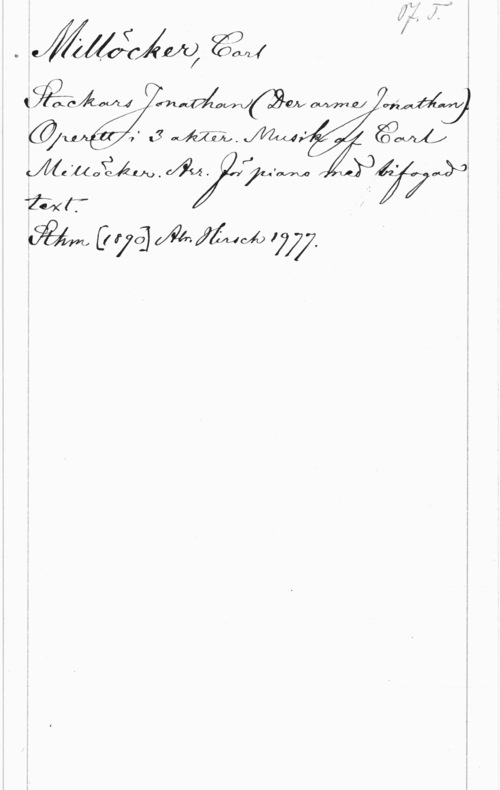 Öf. T.
Millöcker, Carl
Stackars Jonathan (Der arme Jonathan)
Operett i 3 akter. Musik af Carl
Millöcker. Arr. för piano med bifogad
text.
Sthm [1890] Abr. Hirsch 1977.